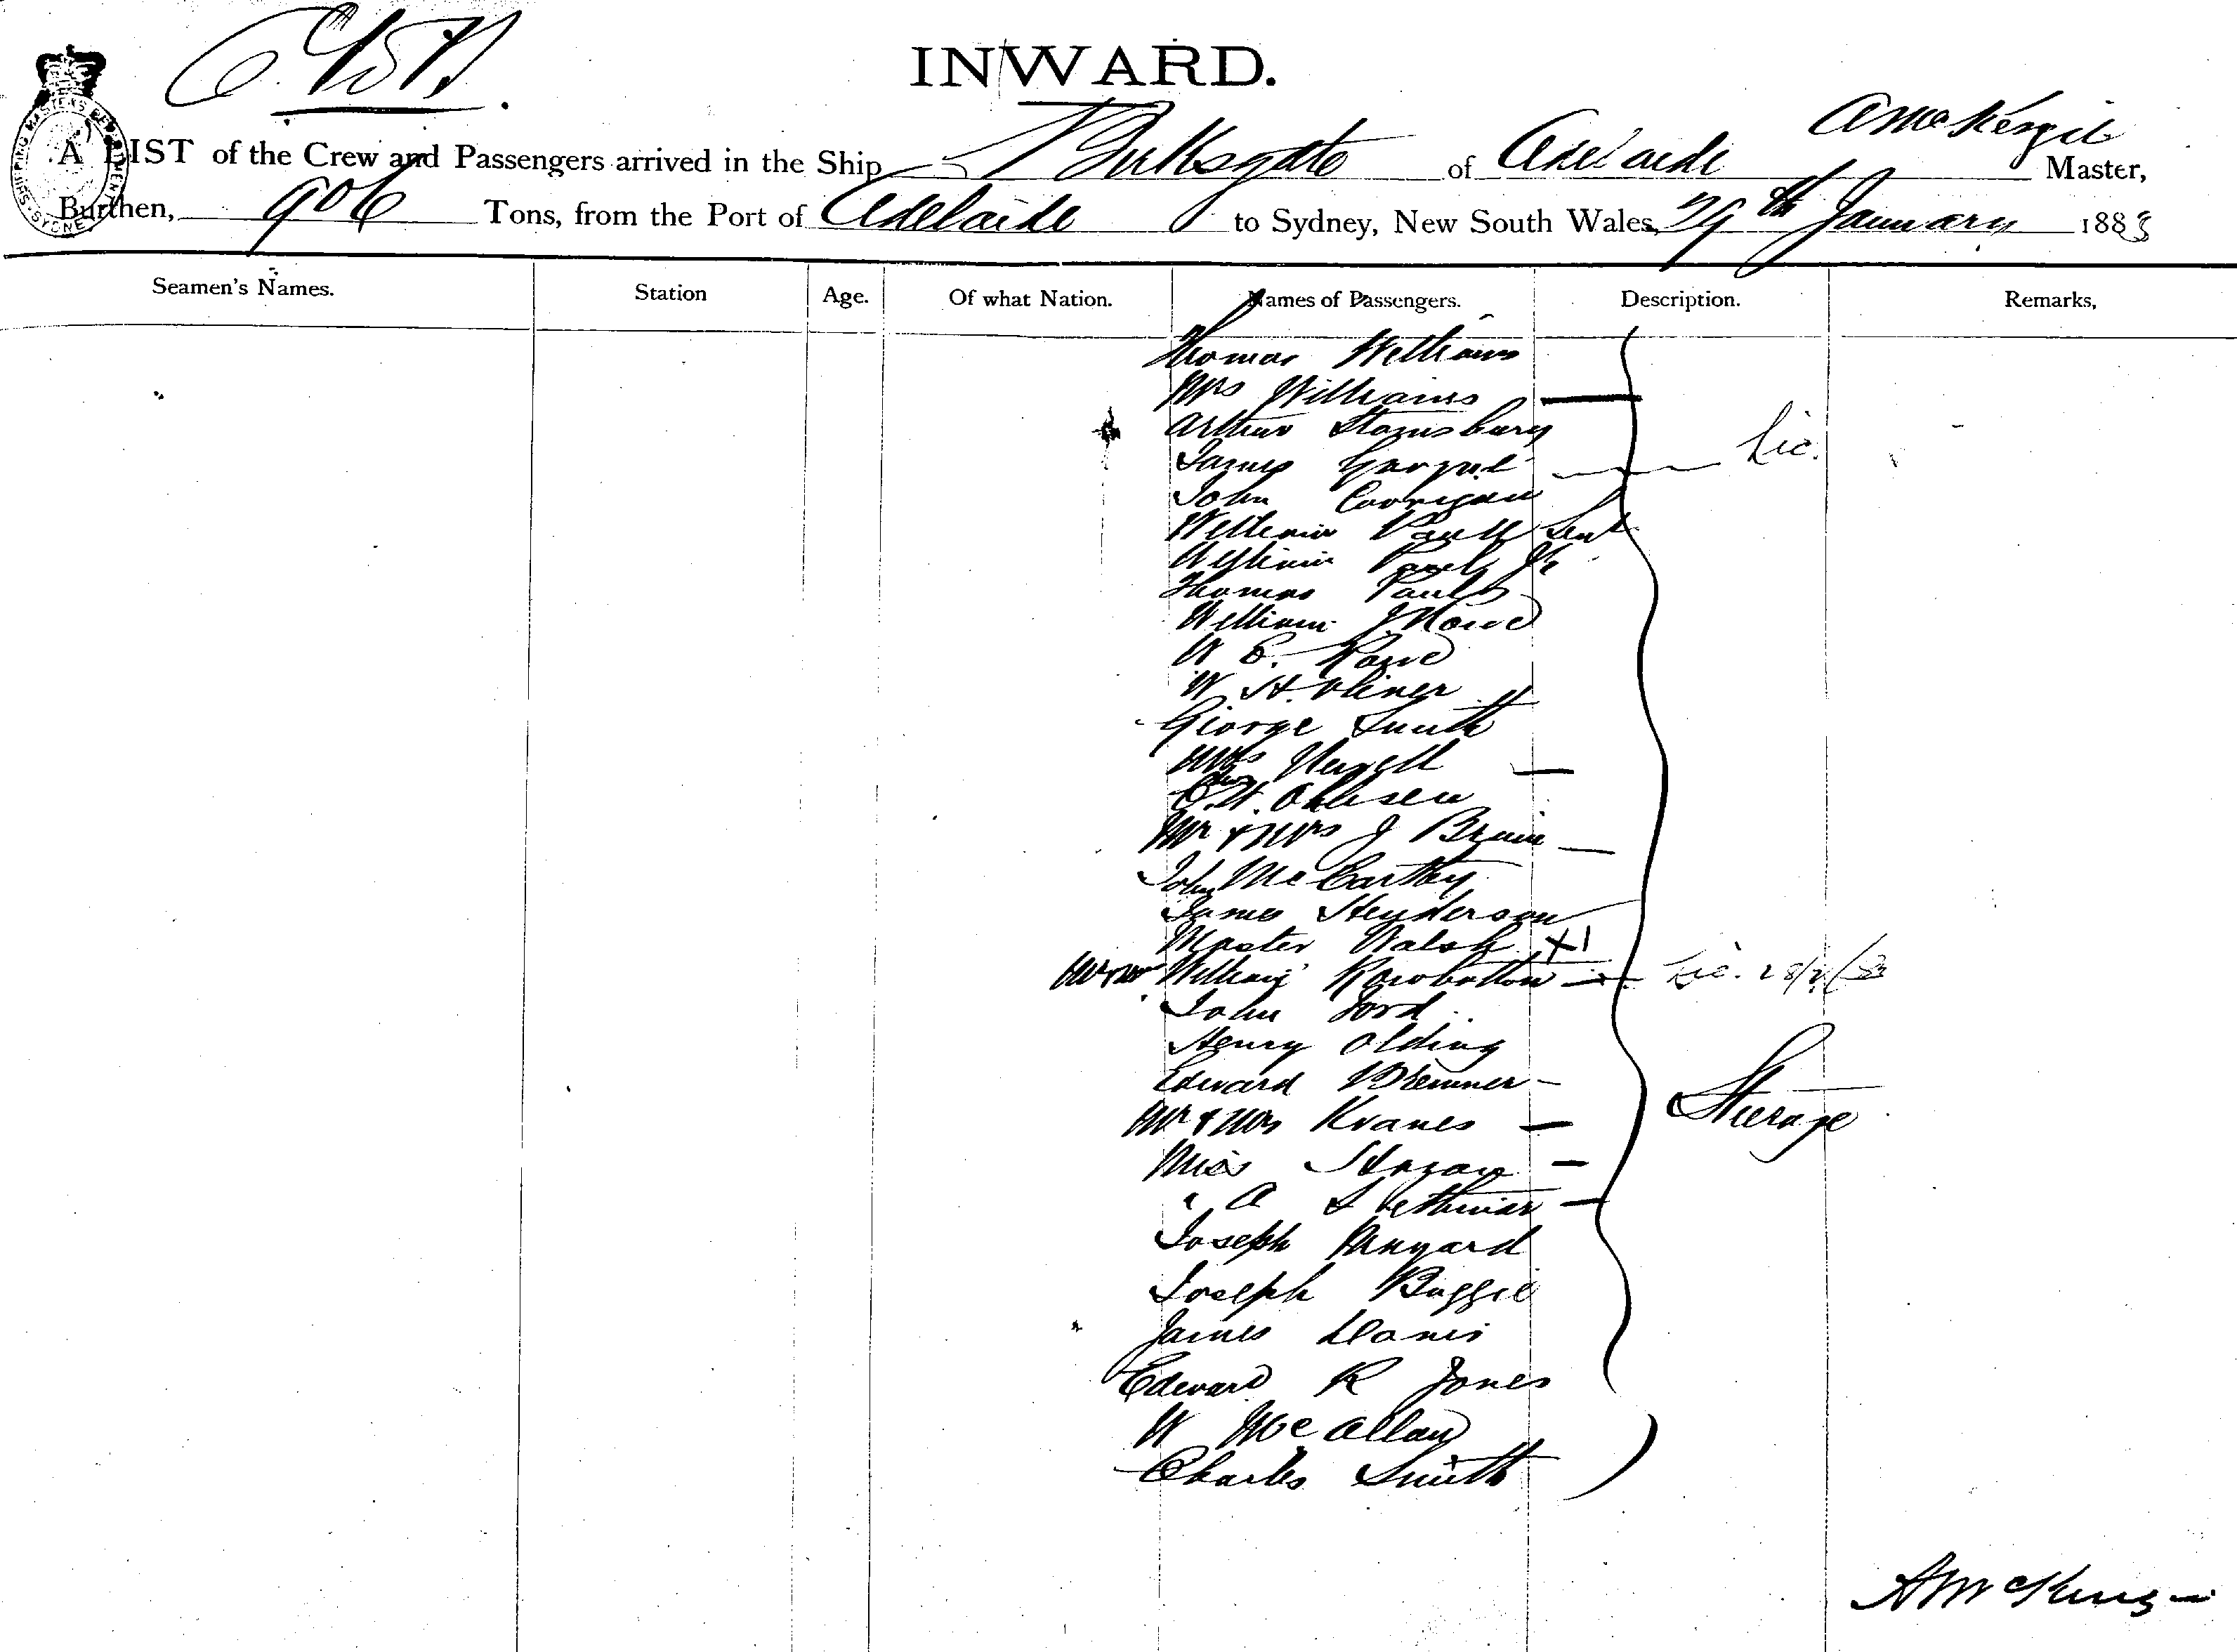 INWARD.
A McKenzie
A LIST of the Crew and Passengers arrived in the Ship Burksgate of Adelaide Master,
Burthen, 906 Tons, from the Port of Adelaide to Sydney, New South Wales, 29th January 1883
Seamen's Names. Station Age. Of what Nation. Names of Passengers. Description. Remarks,
Thomas Williams
Mrs Williams
Arthur Stansbury
James Lic.
John Corrigan
William Paull Senr
William Paull Jr
Thomas Paull
William J Rowe
W E. Rowe
W H. Oliver
George Smith
Mrs Newell
Ohlsen
Mr & Mrs J
John McCarthy
James Henderson
Master Walsh X1
William Rowbottom Lic. 28/2/83
John Ford
Henry Olding
Edward Bremner
Mr & Mrs Kranes Steerage
Miss Horgan
" A
Joseph
Joseph Baggie
James Davis
Edward R Jones
W McAllan
Charles Smith
A McKenzie